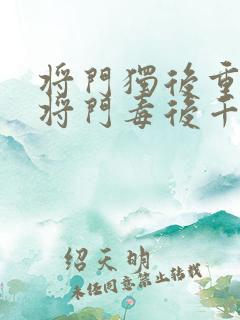 将門獨後重
将門毒後千
绍天明
未经同意禁止转载